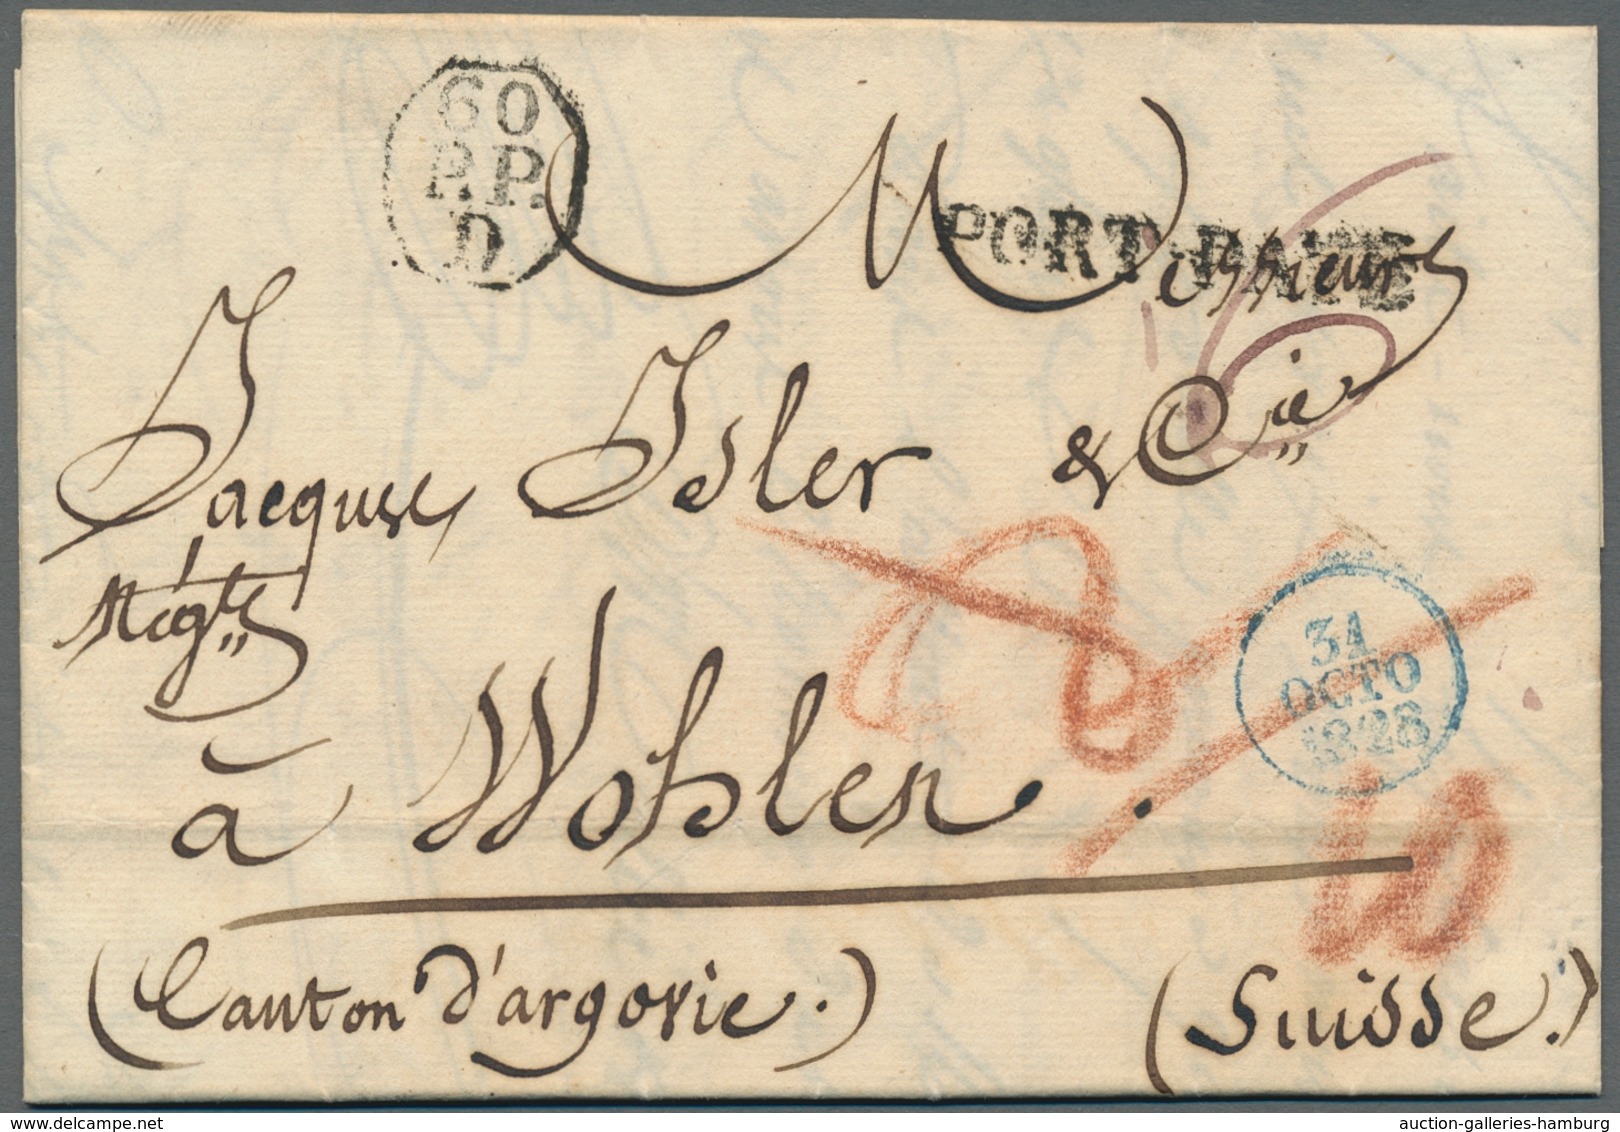 60
P.P.
D
PORT-PAYÉ
Messieurs
Jacques Isler & Cie
Négts
31
OCTO
1828
à Wohlen.
10
(Canton d'argovie.) (Suisse.)
delcampe.net
auction-galleries-hamburg